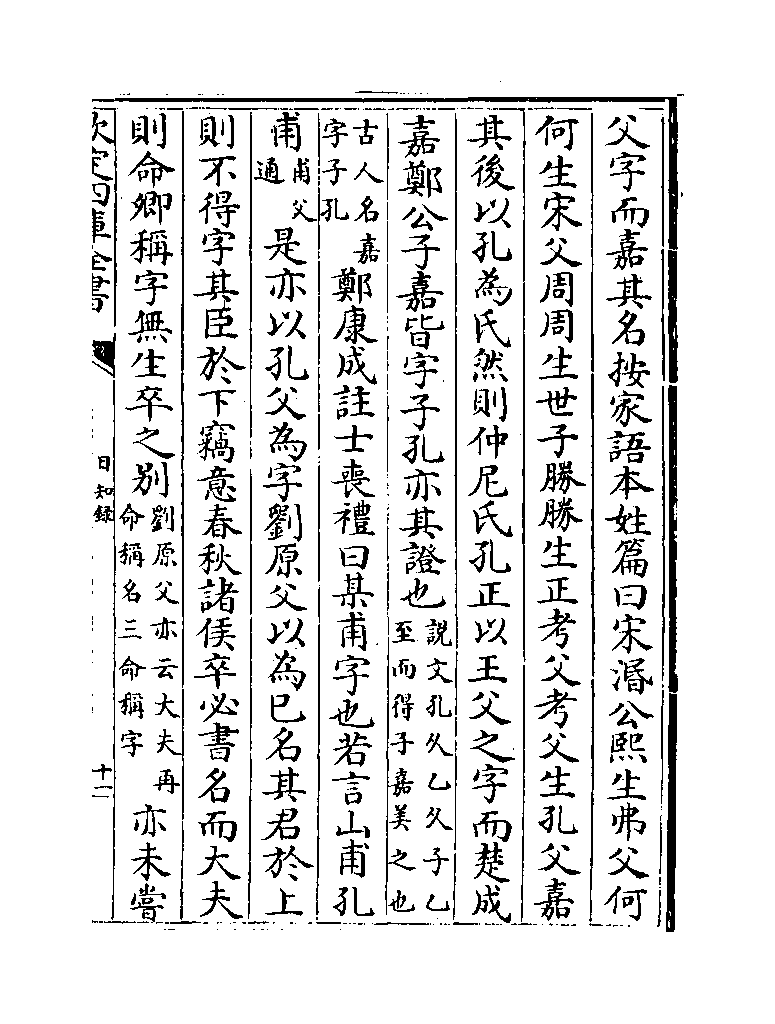 父字而嘉其名按家語本姓篇曰宋湣公熙生弗父何
何生宋父周周生世子勝勝生正考父考父生孔父嘉
其後以孔為氏然則仲尼氏孔正以王父之字而楚成
嘉鄭公子嘉皆字子孔亦其證也說文孔从乙从子乙至而得子嘉美之也
古人名嘉字子孔鄭康成註士喪禮曰某甫字也若言山甫孔
甫甫父通是亦以孔父為字劉原父以為已名其君於上
則不得字其臣於下竊意春秋諸侯卒必書名而大夫
則命卿稱字無生卒之別劉原父亦云大夫再命稱名三命稱字亦未嘗
欽定四庫全書
日知録
十二